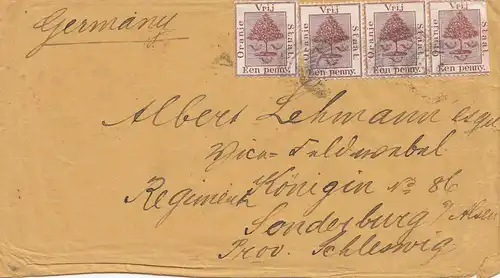 Germany
Vrij Vrij Vrij Vrij
Oranje Staat. Oranje Staat. Oranje Staat. Oranje Staat.
Een penny. Een penny. Een penny. Een penny.
Albert Lehmann esqu
Vice-Feldwebel
Regiment Königin No 86
Sonderburg a/Alsen
Prov. Schleswig